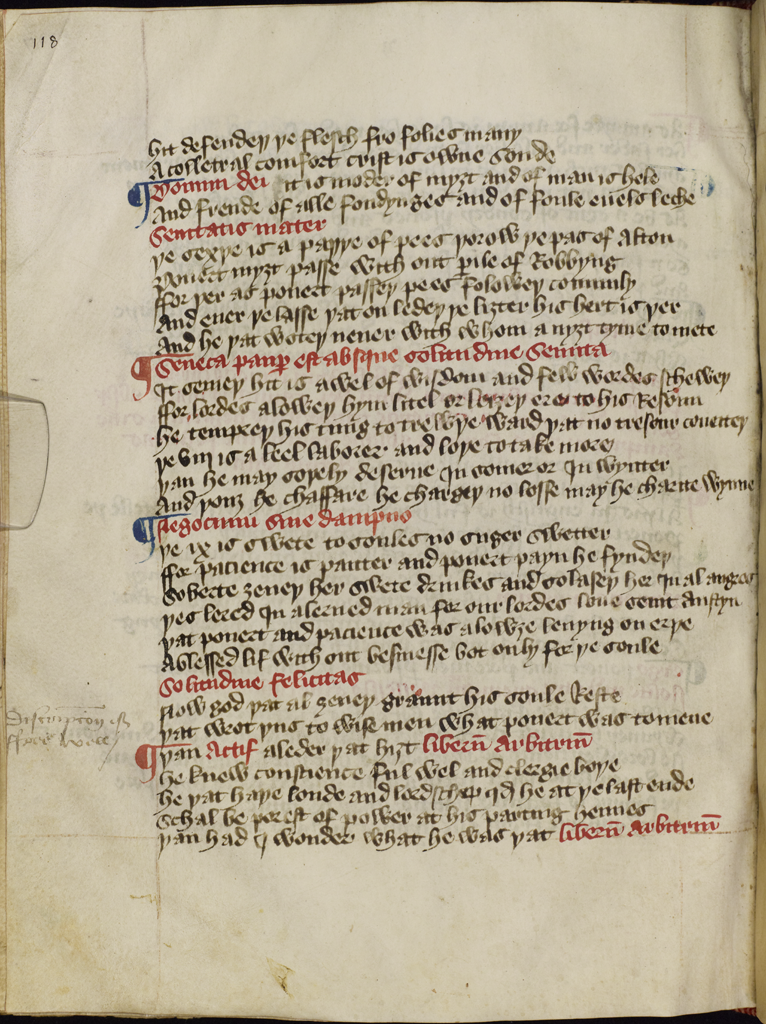 118
hit defendeþ þe flesch fro folies many
A colletral comfort crist is owne sonde
¶ Donum dei it is moder of myȝt and of man is hele
And frende of alle fondynges and of foule euels leche
Senitatis mater
þe sexþe is a paþþe of pees þorow þe pas of Alton
pouert myȝt passe with out peile of Robbyng
ffor þer as pouert passeþ pees foloweþ comunly
And euer þe lasse þat on ledeþ þe liȝter his hert is þer
And he þat woteþ neuer with whom a nyȝt tyme to mete
¶ Seneca paup est absque solitudine Semita
It semeþ hit is a wel of wisdom and few wordes scheweþ
ffor lordes aloweþ hym litel or ere to his Resoun
he tempreþ his tung to trewþe ward þat no tresour coueiteþ
þe viij is a leel laborer and loþe to take more
þan he may soþely deserue In somer or In wynter
And þouȝ he chaffare he chargeþ no losse may he charite wynne
¶ Negocium sine dampno
þe ix is swete to soules no suger swetter
ffor pacience is panter and pouert payn he fyndeþ
Soberte ȝeueþ her swete drinkes and solaseþ her In al angres
þes lered In a lerned man for our lordes loue seint Austyn
þat pouert and pacience was alowȝe leuyng on erþe
A blessed lif with out besinesse bot only for þe soule
Solitudine felicitas
Now god þat al ȝeueþ graunt his soule Reste
þat wrot þus to wise men what pouert was to mene
¶ þan Actif a leder þat hiȝt liberũ Arbitriũ
he knew conscience ful wel and clergie boþe
he þat haþe londe and lordschep qd he at þe last ende
Schal be porest of power at his parting hennes
þan had I wonder what he was þat liberũ Arbitriũ